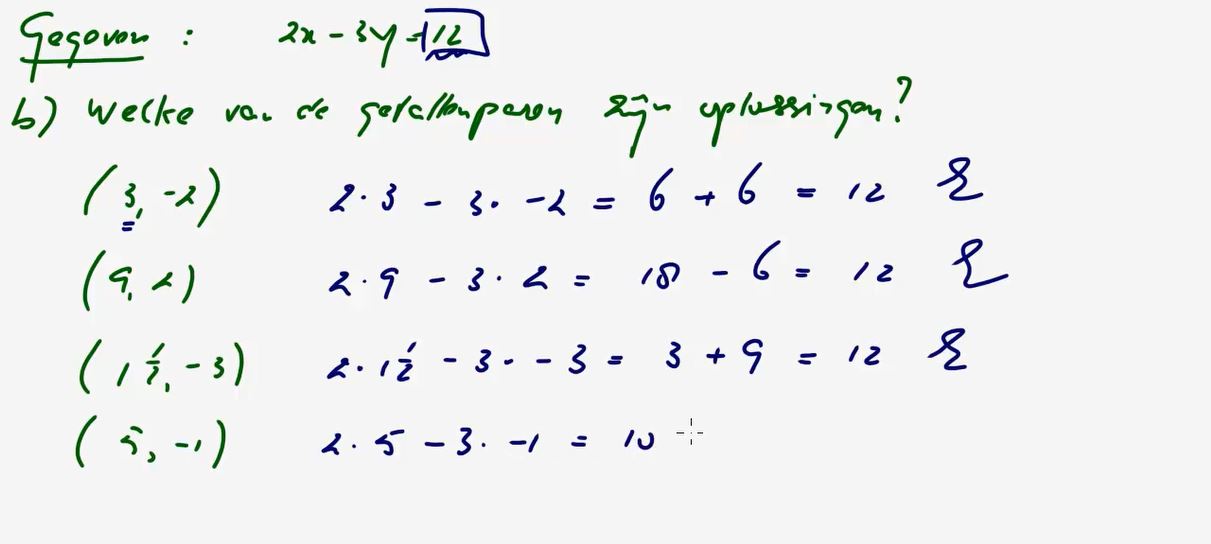 Gegeven : 2x - 3y = 12
b) Welke van de getallenparen zijn oplossingen?
(3, -2) 2·3 - 3·-2 = 6 + 6 = 12
(9, 2) 2·9 - 3·2 = 18 - 6 = 12
(1½, -3) 2·1½ - 3·-3 = 3 + 9 = 12
(5, -1) 2·5 - 3·-1 = 10